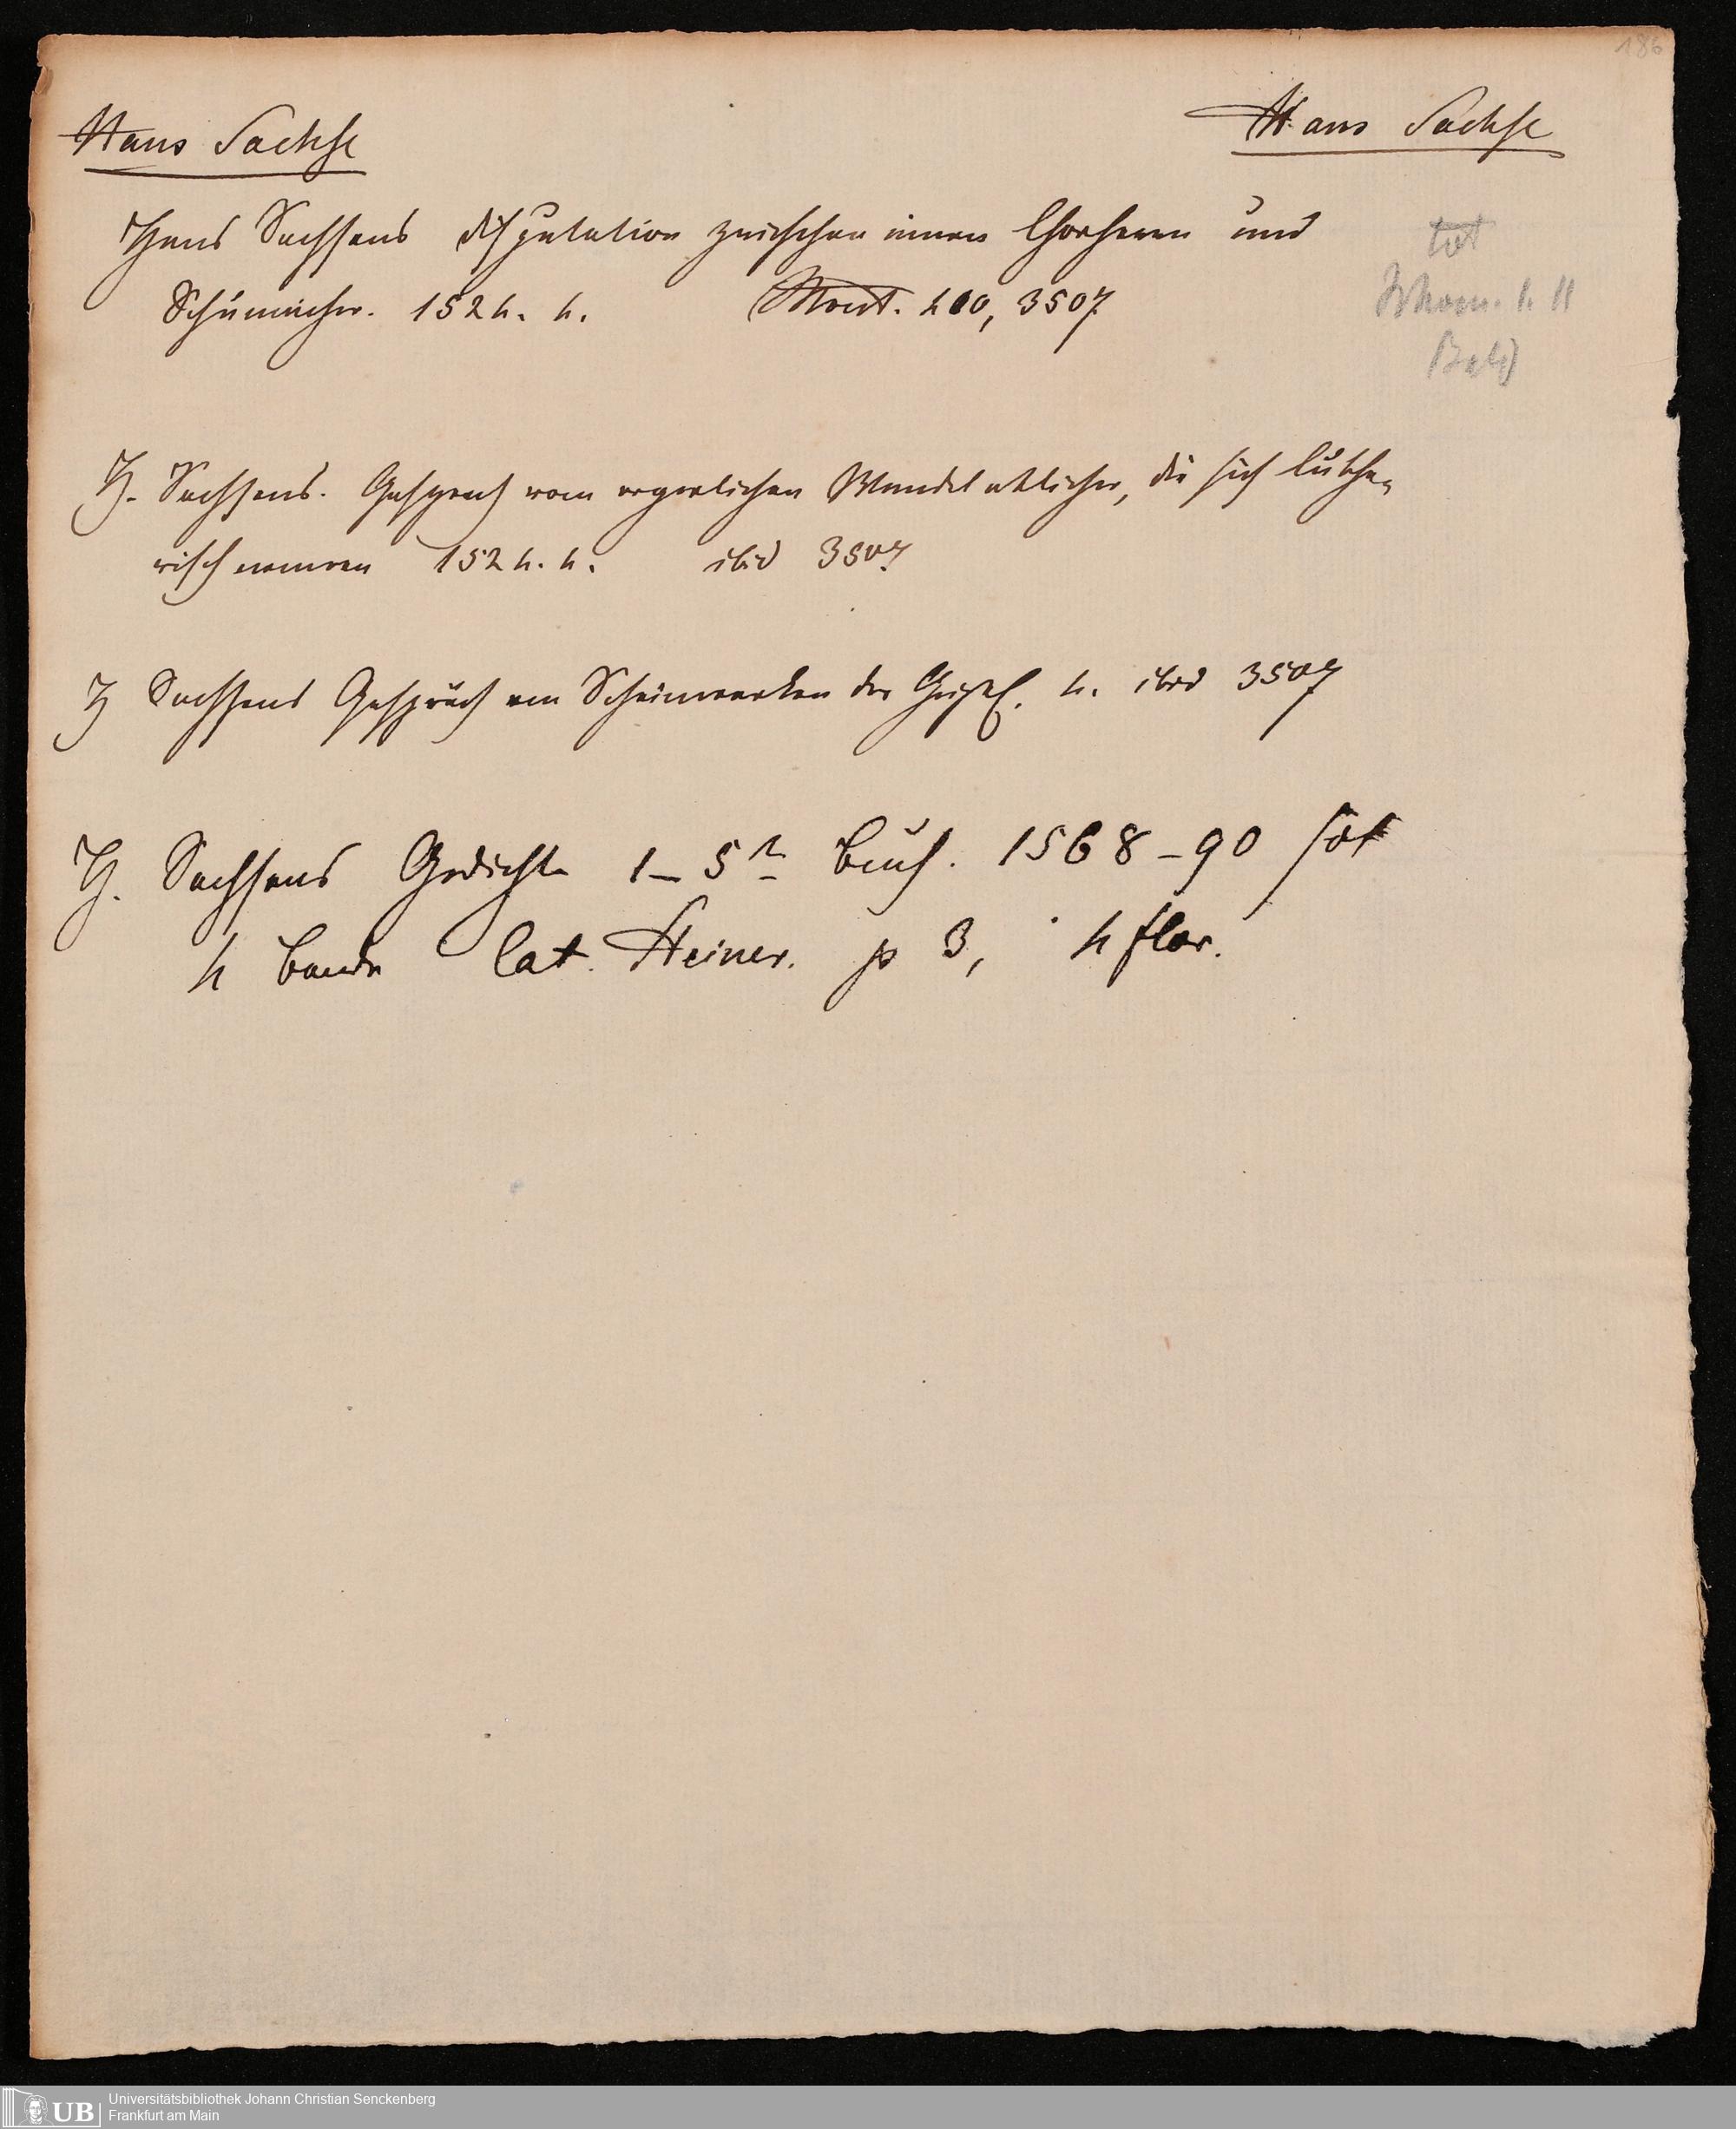 186
Hans Sachse
Hans Sachse
Hans Sachsens disputation zwischen einen Chorherrn und
Schumacher. 1524. 4. 400, 3507
tot
H. Sachsens. Gesprech vom ergerlichen Wandel etlicher, die sich luthe-
risch nennen 1524. 4. ibid 3507
H Sachsens Gespräch von Scheinwerken der Geistl. 4. ibid 3507
H. Sachsens Gedichte 1–5t Buch. 1568–90 fol
4 Bände Cat. Heiner. p 3, 4 flor.
UB
Universitätsbibliothek Johann Christian Senckenberg
Frankfurt am Main